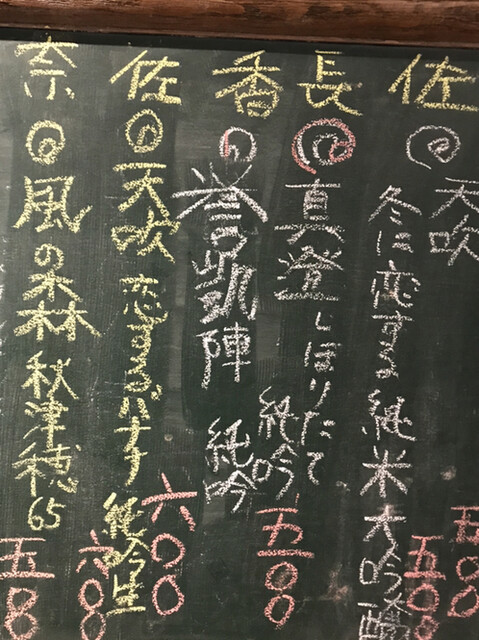 佐
天吹
冬に恋する純米大吟醸
五〇〇
五〇〇
長
真澄 しぼりたて
純吟
五〇〇
香
誉凱陣 純吟
六〇〇
佐
天吹 恋するバナナ 純吟生
六〇〇
奈
風の森 秋津穂 65
五